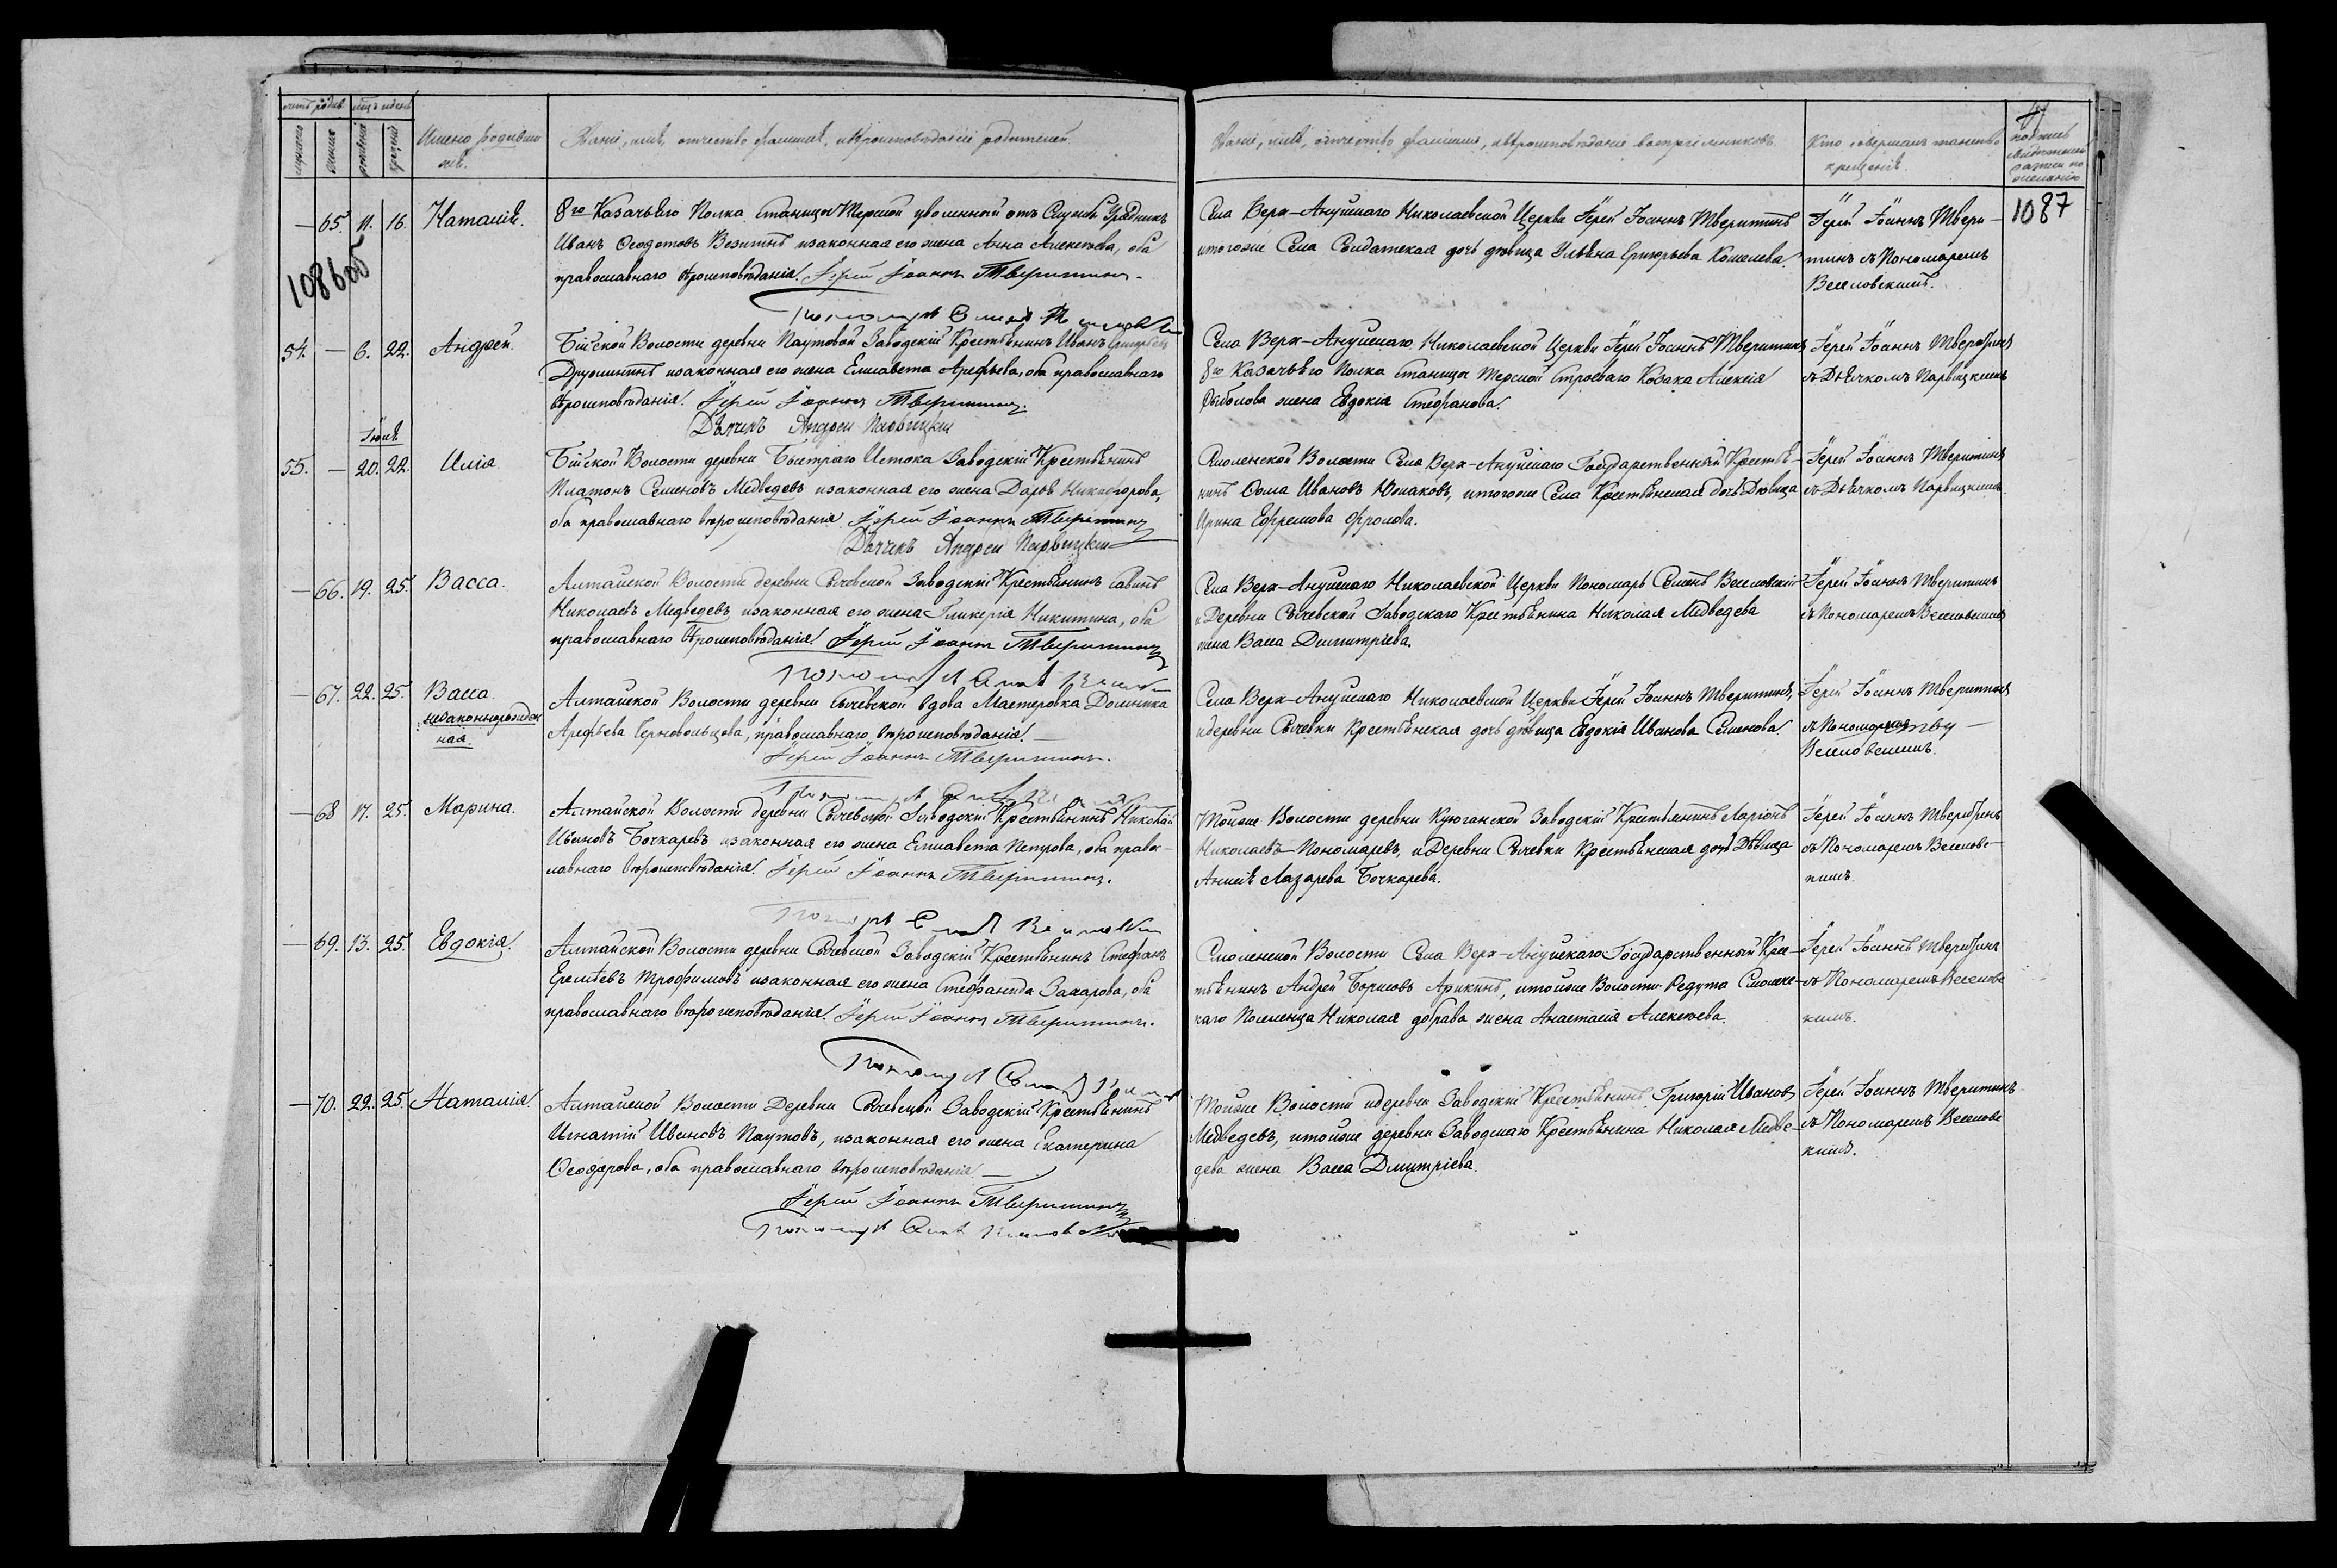 счетъ родив. мѣс. и день
мужеска
женска
рожденія
крещенія
Имена родивши
хся.
Званіе, имя, отчество фамилія, и вѣроисповѣданіе родителей.
— 65. 11. 16. Наталія.
8го Казачьяго Полка Станицы Терской уволенный отъ Службы Урядникъ
Иванъ Ѳеодотовъ и законная его жена Анна Алексѣева, оба
православнаго вѣроисповѣданія. Іерей Іоаннъ Тверитинъ.
1086об
54. — 6. 22. Андрей.
Бійской Волости деревни Паутовой Заводскій Крестьянинъ Иванъ Григорьевъ
Дружининъ и законная его жена Елисавета Арефьева, оба православнаго
вѣроисповѣданія. Іерей Іоаннъ Тверитинъ.
Дьячекъ Андрей Парвицкій
Іюля
55. — 20. 22. Илія.
Бійской Волости деревни Быстраго Истока Заводскій Крестьянинъ
Платонъ Семеновъ Медведевъ и законная его жена Дарья Никифорова,
оба православнаго вѣроисповѣданія. Іерей Іоаннъ Тверитинъ
Дьячекъ Андрей Парвицкій
— 66. 19. 25. Васса.
Алтайской Волости деревни Сычевской Заводскій Крестьянинъ Савинъ
Николаевъ Медведевъ и законная его жена Гликерія Никитина, оба
православнаго вѣроисповѣданія. Іерей Іоаннъ Тверитинъ
— 67. 22. 25. Васса.
незаконнорожден
ная.
Алтайской Волости деревни Сычевской вдова Мастеровка Домника
Арефьева Черновольцова, православнаго вѣроисповѣданія.—
Іерей Іоаннъ Тверитинъ.
— 68 17. 25. Марина.
Алтайской Волости деревни Сычевской Заводскій Крестьянинъ Николай
Ивановъ Бочкаревъ и законная его жена Елисавета Петрова, оба право-
славнаго вѣроисповѣданія. Іерей Іоаннъ Тверитинъ.
— 69. 13. 25. Евдокія.
Алтайской Волости деревни Сычевской Заводскій Крестьянинъ Стефанъ
Еремѣевъ Трофимовъ и законная его жена Стефанида Захарова, оба
православнаго вѣроисповѣданія. Іерей Іоаннъ Тверитинъ.
— 70. 22. 25. Наталія.
Алтайской Волости Деревни Сычевской Заводскій Крестьянинъ
Игнатій Ивановъ Паутовъ, и законная его жена Екатерина
Ѳеодорова, оба православнаго вѣроисповѣданія —
Іерей Іоаннъ Тверитинъ
Званіе, имя, отчество фамилія, и вѣроисповѣданіе воспріемниковъ.
Кто совершалъ таинство
крещенія.
1087
Села Верх-Ануйскаго Николаевской Церкви Іерей Іоаннъ Тверитинъ
и того же Села Солдатская дочь дѣвица Ульяна Григорьева Кошелева.
Іерей Іоаннъ Твери-
тинъ съ Пономаремъ
Веселовскимъ.
Села Верх-Ануйскаго Николаевской Церкви Іерей Іоаннъ Тверитинъ
8го Казачьяго Полка Станицы Терской Строеваго Козака Алексія
Рыболова жена Евдокія Стефанова.
Іерей Іоаннъ Тверитинъ
съ Дьячкомъ Парвицкимъ
Смоленской Волости Села Верх-Ануйскаго Государственный Крестья-
нинъ Ѳома Ивановъ Южаковъ, и того же Села Крестьянская дочь Дѣвица
Ирина Ефремова Фролова.
Іерей Іоаннъ Тверитинъ
съ Дьячкомъ Парвицкимъ.
Села Верх-Ануйскаго Николаевской Церкви Пономарь Семенъ Веселовскій
и Деревни Сычевской Заводскаго Крестьянина Николая Медведева
жена Васса Димитріева.
Іерей Іоаннъ Тверитинъ
съ Пономаремъ Веселовскимъ
Села Верх-Ануйскаго Николаевской Церкви Іерей Іоаннъ Тверитинъ,
и деревни Сычевки Крестьянская дочь дѣвица Евдокія Иванова Семенова.
Іерей Іоаннъ Тверитинъ
съ Пономаремъ
Веселовскимъ.
Той же Волости деревни Куюганской Заводскій Крестьянинъ Ларіонъ
Николаевъ Пономаревъ, и Деревни Сычевки Крестьянская дочь Дѣвица
Анисія Лазарева Бочкарева.
Іерей Іоаннъ Тверитинъ
съ Пономаремъ Веселовс-
кимъ.
Смоленской Волости Села Верх-Ануйскаго Государственный Крес-
тьянинъ Андрей Борисовъ Арикинъ, и той же Волости Редута Смоленс-
каго Поселенца Николая жена Анастасія Алексѣева.
Іерей Іоаннъ Тверитинъ
съ Пономаремъ Веселовс
кимъ.
Той же Волости и деревни Заводскій Крестьянинъ Григорій Ивановъ
Медведевъ, и той же деревни Заводскаго Крестьянина Николая Медве-
дева жена Васса Дмитріева.
Іерей Іоаннъ Тверитинъ
съ Пономаремъ Веселовс
кимъ.